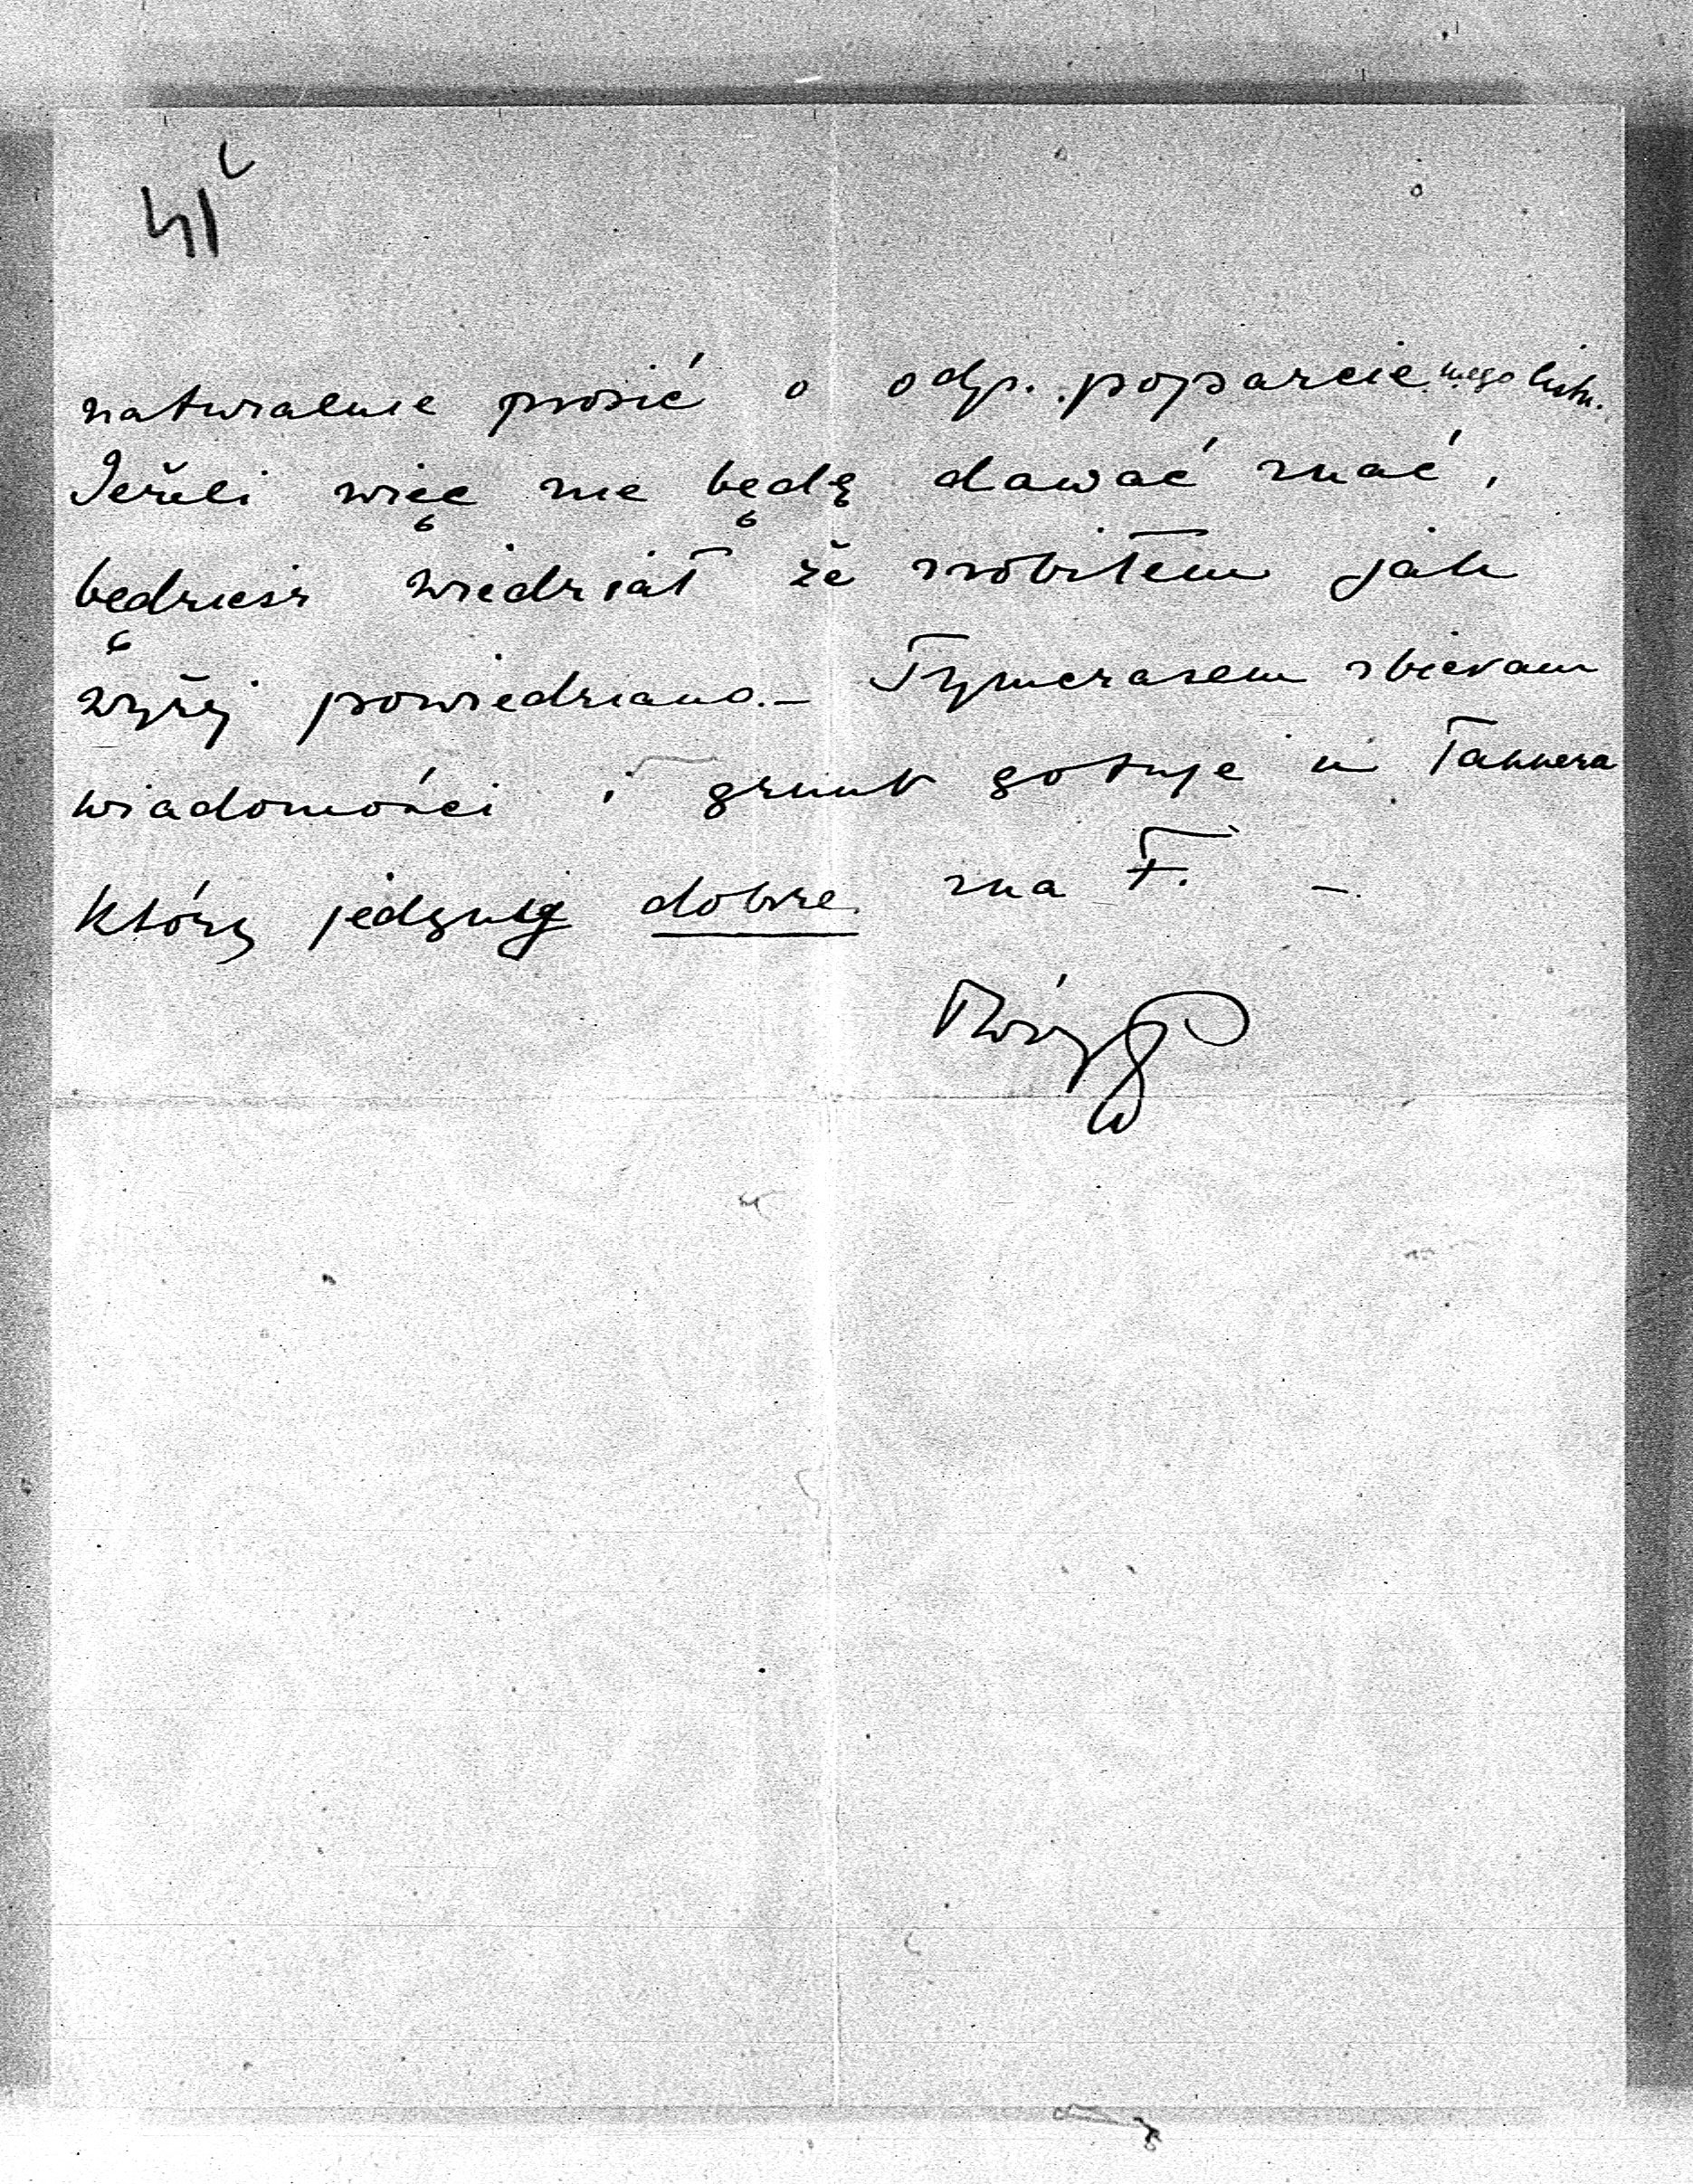 41
naturalnie prosić o odp. poparcie mego listu.
Jeżeli więc nie będę dawać znać,
będziesz wiedział że zrobiłem jak
wyżej powiedziano.— Tymczasem zbieram
wiadomości i grunt gotuję u Tannera
który jedynie dobrze zna F. —
Twój